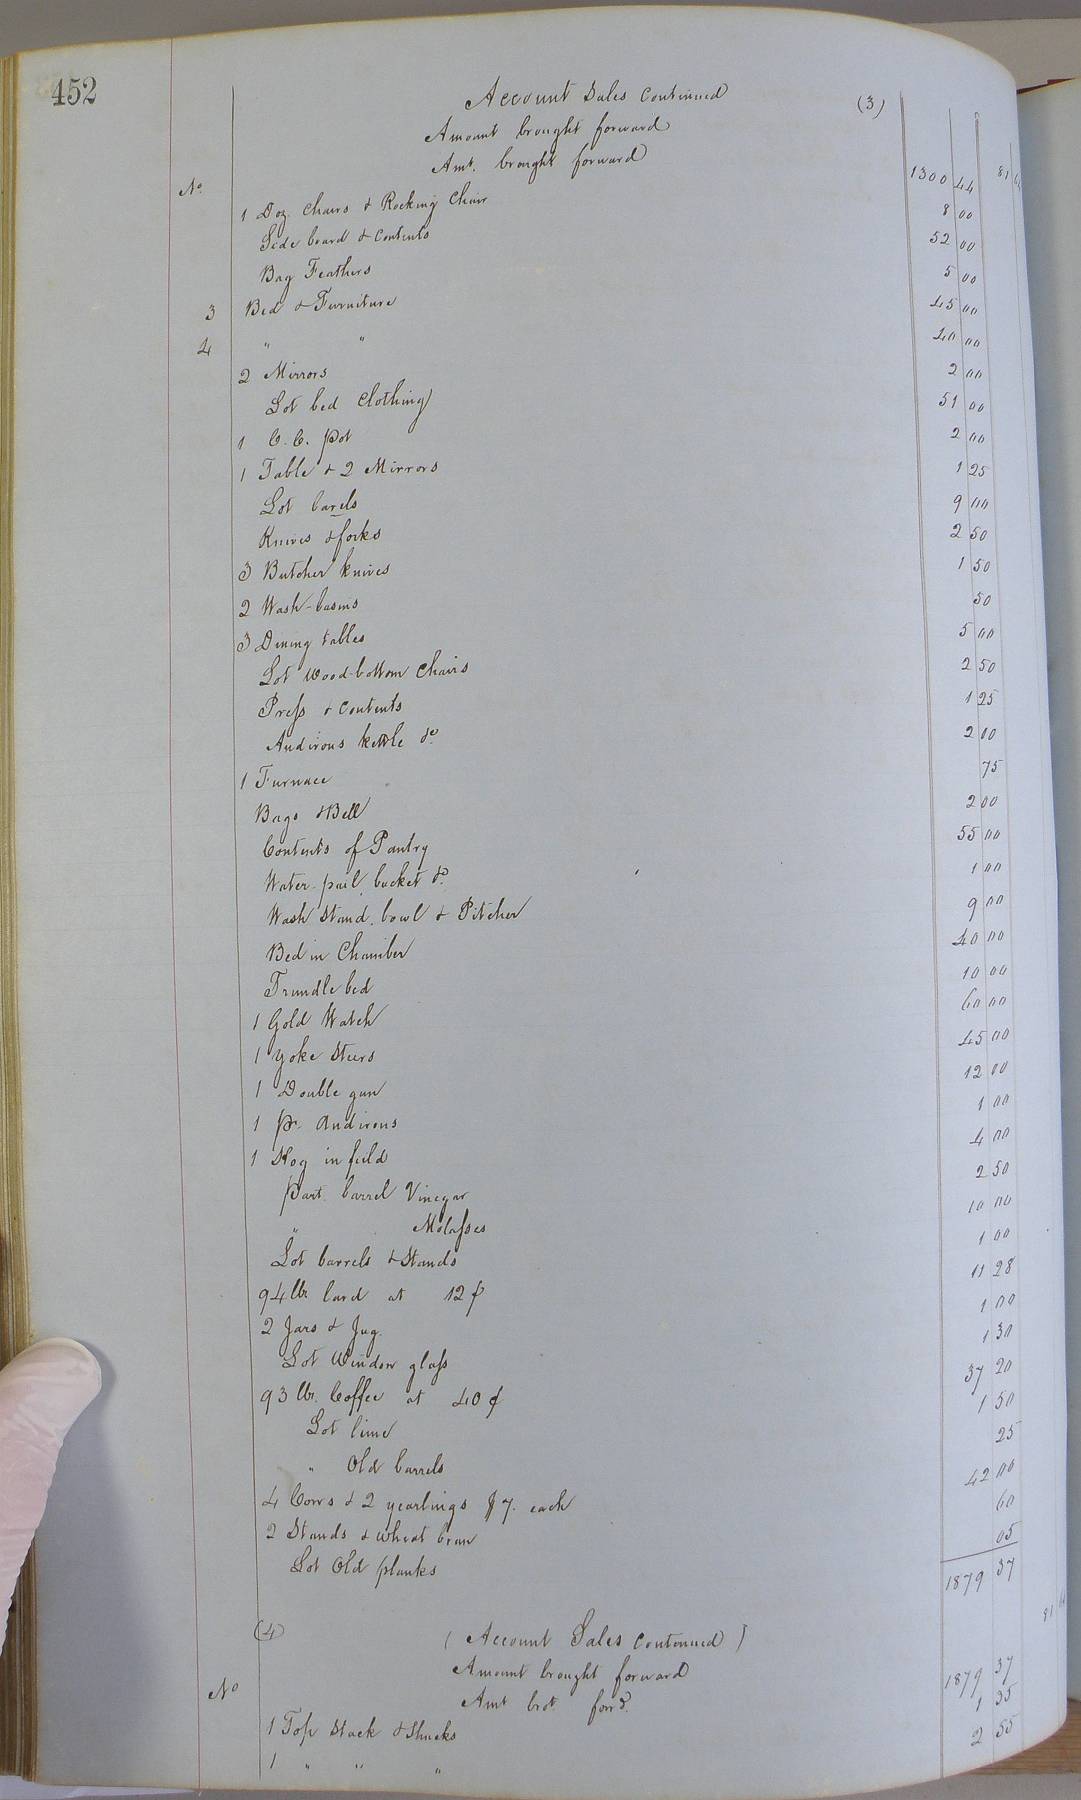 452
Account Sales Continued (3)
Amount brought forward 81
Amt. brought forward 1300 44
No.
1 Doz. Chairs & Rocking Chair 8 00
Side board & Contents 52 00
Bag Feathers 5 00
3 Bed & Furniture 45 00
4 " " 40 00
2 Mirrors 2 00
Lot bed Clothing 51 00
1 C. C. Pot 2 00
1 Table & 2 Mirrors 1 25
Lot barels 9 00
Knives & forks 2 50
3 Butcher knives 1 50
2 Wash-basins 50
3 Dining tables 5 00
Lot Wood-bottom Chairs 2 50
Press & Contents 1 25
Andirons kettle &c. 2 00
1 Furnace 75
Bags & Bell 2 00
Contents of Pantry 55 00
Water-pail, bucket &c. 1 00
Wash Stand, bowl & Pitcher 9 00
Bed in Chamber 40 00
Trundle bed 10 00
1 Gold Watch 60 00
1 Yoke Steers 45 00
1 Double gun 12 00
1 Pr. Andirons 1 00
1 Hog in field 4 00
Part barrel Vinegar 2 50
" Molasses 10 00
Lot barrels & Stands 1 00
94 lbs. lard at 12 ¢ 11 28
2 Jars & Jug. 1 00
Lot Window glass 1 30
93 lbs. Coffee at 40 ¢ 37 20
Lot lime 1 50
" Old barrels 25
4 Cows & 2 yearlings $7. each 42 00
2 Stands & wheat bran 60
Lot Old planks 05
1879 37
(4) (Account Sales Contonued)
Amount brought forward 81
No Amt brot. forrd. 1879 37
1 Top Stack & Shucks 1 35
1 " " " 2 55